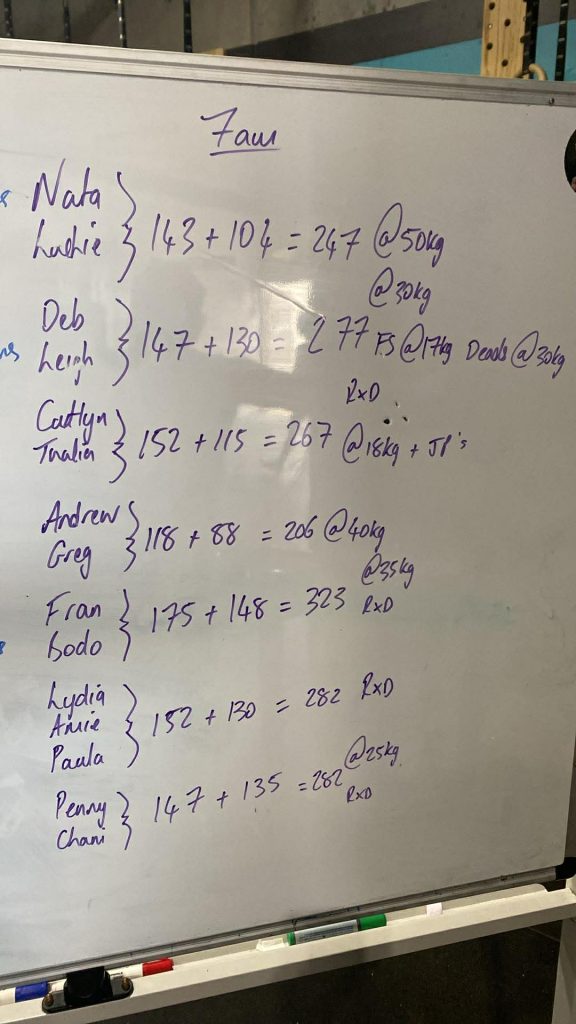 7am
Nata
Luckie } 143 + 104 = 247 @50kg
@30kg
Deb
Leigh } 147 + 130 = 277 FS @17kg Deads @30kg
RxD
Caitlyn
Tualia } 152 + 115 = 267 @18kg + JP's
Andrew
Greg } 118 + 88 = 206 @40kg
@35kg
Fran
Bodo } 175 + 148 = 323 RxD
Lydia
Amie
Paula } 152 + 130 = 282 RxD
@25kg
Penny
Chani } 147 + 135 = 282 RxD